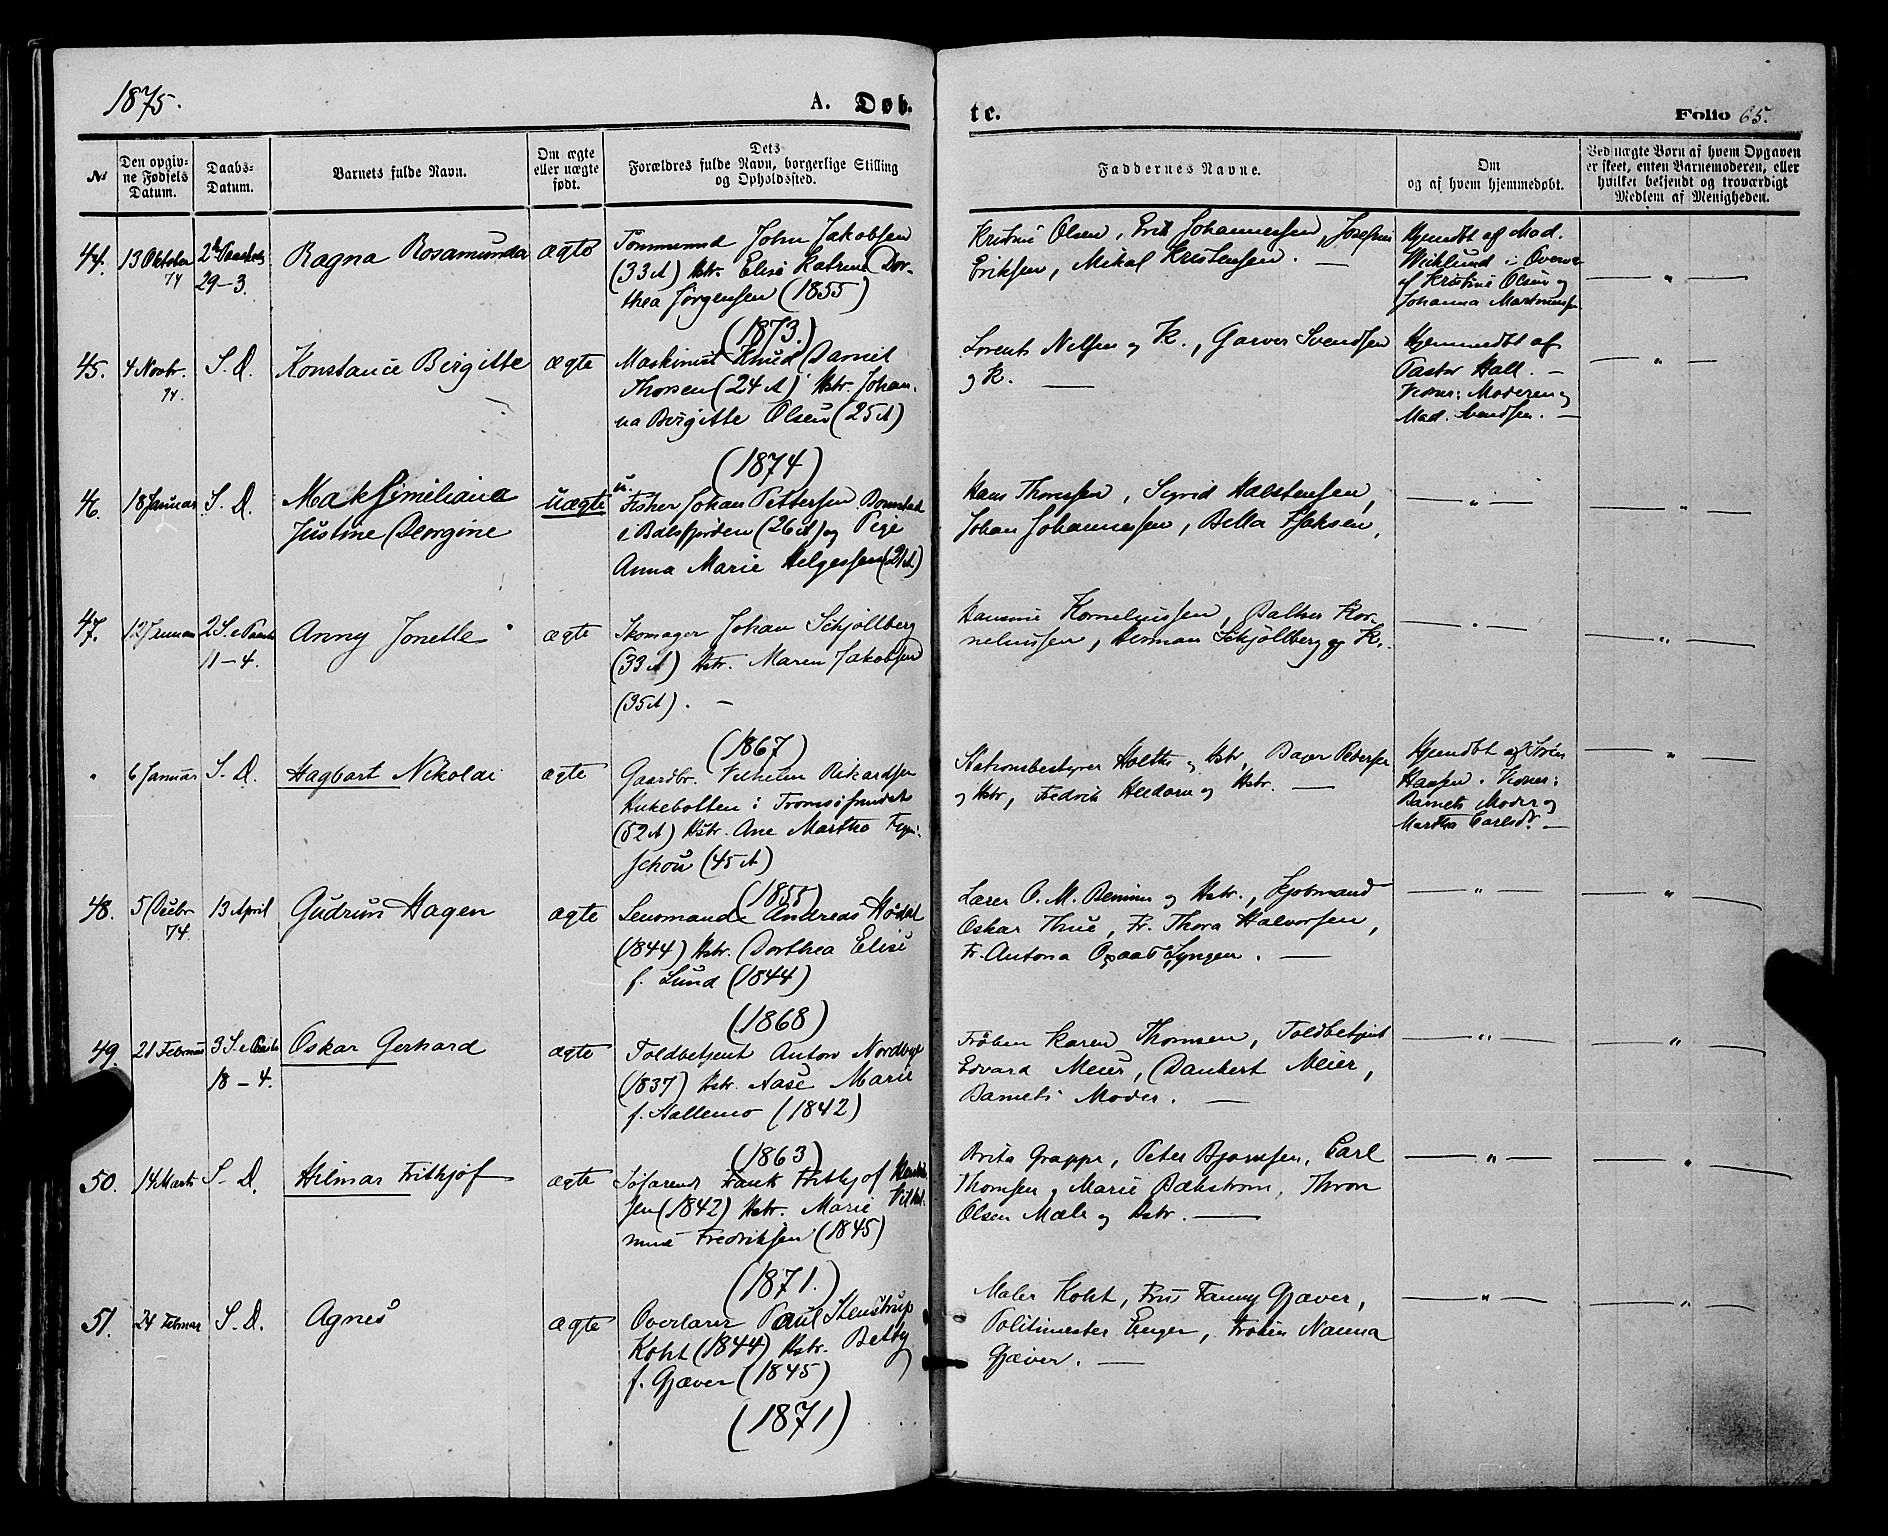 1875.
A. Døb-
te.
Folio 65.
No
Den opgiv-
ne Fødsels
Datum.
Daabs-
Datum.
Barnets fulde Navn.
Om ægte
eller uægte
født.
Dets
Forældres fulde Navn, borgerlige Stilling
og Opholdssted.
Faddernes Navne.
Om
og af hvem hjemmedøbt.
Ved uægte Børn af hvem Opgaven
er skeet, enten Barnemoderen, eller
hvilket bekjendt og troværdigt
Medlem af Menigheden.
44.
13 Oktober
74
29-3.
Ragna Rosamunda
ægte
Tømmermd John Jakobsen
(33 A) Hstr. Elise Katrine Dor-
thea Jørgensen (1855)
(1873.)
Kristine Olsen, Erik Johannessen, Josefine
Eriksen, Mikal Kristensen. —
Hjemdbt af Mad.
Wiklund i Overv.
af Kristine Olsen og
Johanna Martinussen
— " —
45.
4 Novbr.
74.
S. D.
Konstance Birgitte
ægte
Maskinist Knud Daniel
Thorsen (24 A) Hstr. Johan-
na Birgitte Olsen (25 A)
(1874)
Lorents Nilsen og K., Garver Svendsen
og K. —
Hjemmedbt af
Pastor Hall. —
Vidner: Moderen og
Mad. Svendsen. —
— " —
46.
18 Januar
S. D.
Maksimiliana
Justine Georgine
uægte
u.
Fisker Johan Pettersen Bomstad
i Balsfjorden (26 A) og Pige
Anna Marie Helgessen (21 A)
Hans Thomssen, Sigrid Halstensen,
Johan Johannessen, Bella Isaksen,
— " —
— " —
47.
12 Januar
2 S. e Paaske
11-4.
Anny Jonette
ægte
Skomager Johan Schjøllberg
(33 A) Hstr. Maren Jakobsen
(35 A). —
(1867)
Hansine Korneliussen, Balther Kor-
neliussen, Herman Schjøllberg og K.
— " —
— " —
"
6 Januar
S. D.
Hagbart Nikolai
ægte
Gaardbr. Vilhelm Rikardsen
Kukebolten i Tromsøsundet
(52 A) Hstr. Ane Martha
(45 A)
(1855)
Stationsbestyrer Holthe og Hstr, Bager Pedersen
og Hstr, Fredrik Heldorn og Hstr. —
Hjemdbt af Sven
Hansen. Vidner:
Barnets Moder og
Martha Carlsdr. —
— " —
48.
5 Decbr
74.
13 April
Gudrun Hagen
ægte
Lensmand Andreas Hødal
(1844) Hstr. Dorthea Elise
f. Lund (1844)
(1868)
Lærer O. M. og Hstr., Kjøbmand
Oskar Thue, Fr. Thora Halvorsen,
Fr. Antona Opaas Lyngen. —
— " —
— " —
49.
21 Februar
3 S. e Paaske
18-4.
Oskar Gerhard
ægte
Toldbetjent Anton Nordbye
(1837) Hstr. Aase Marie
f. Hallemo (1842)
(1863)
Frøken Karen Thomsen, Toldbetjent
Edvard Meier, Dankert Meier,
Barnets Moder. —
— " —
— " —
50.
14 Marts
S. D.
Hilmar Frithjof
ægte
Søfarende Frants Frithjof
sen (1842) Hstr. Marie Vilhel-
mine Fredriksen (1845)
(1871.)
Brita Grappe, Peter Bjørnsen, Carl
Thomsen og Marie Bækstrøm, Thron
Olsen Mæle og Hstr. —
— " —
— " —
51.
24 Februar
S. D.
Agnes
ægte
Overlærer Paul Stenstrup
Koht (1844) Hstr. Betty
f. Gjæver (1845)
(1871)
Maler Koht, Fru Fanny Gjæver,
Politimester Enger, Frøken Nanna
Gjæver. —
— " —
— " —